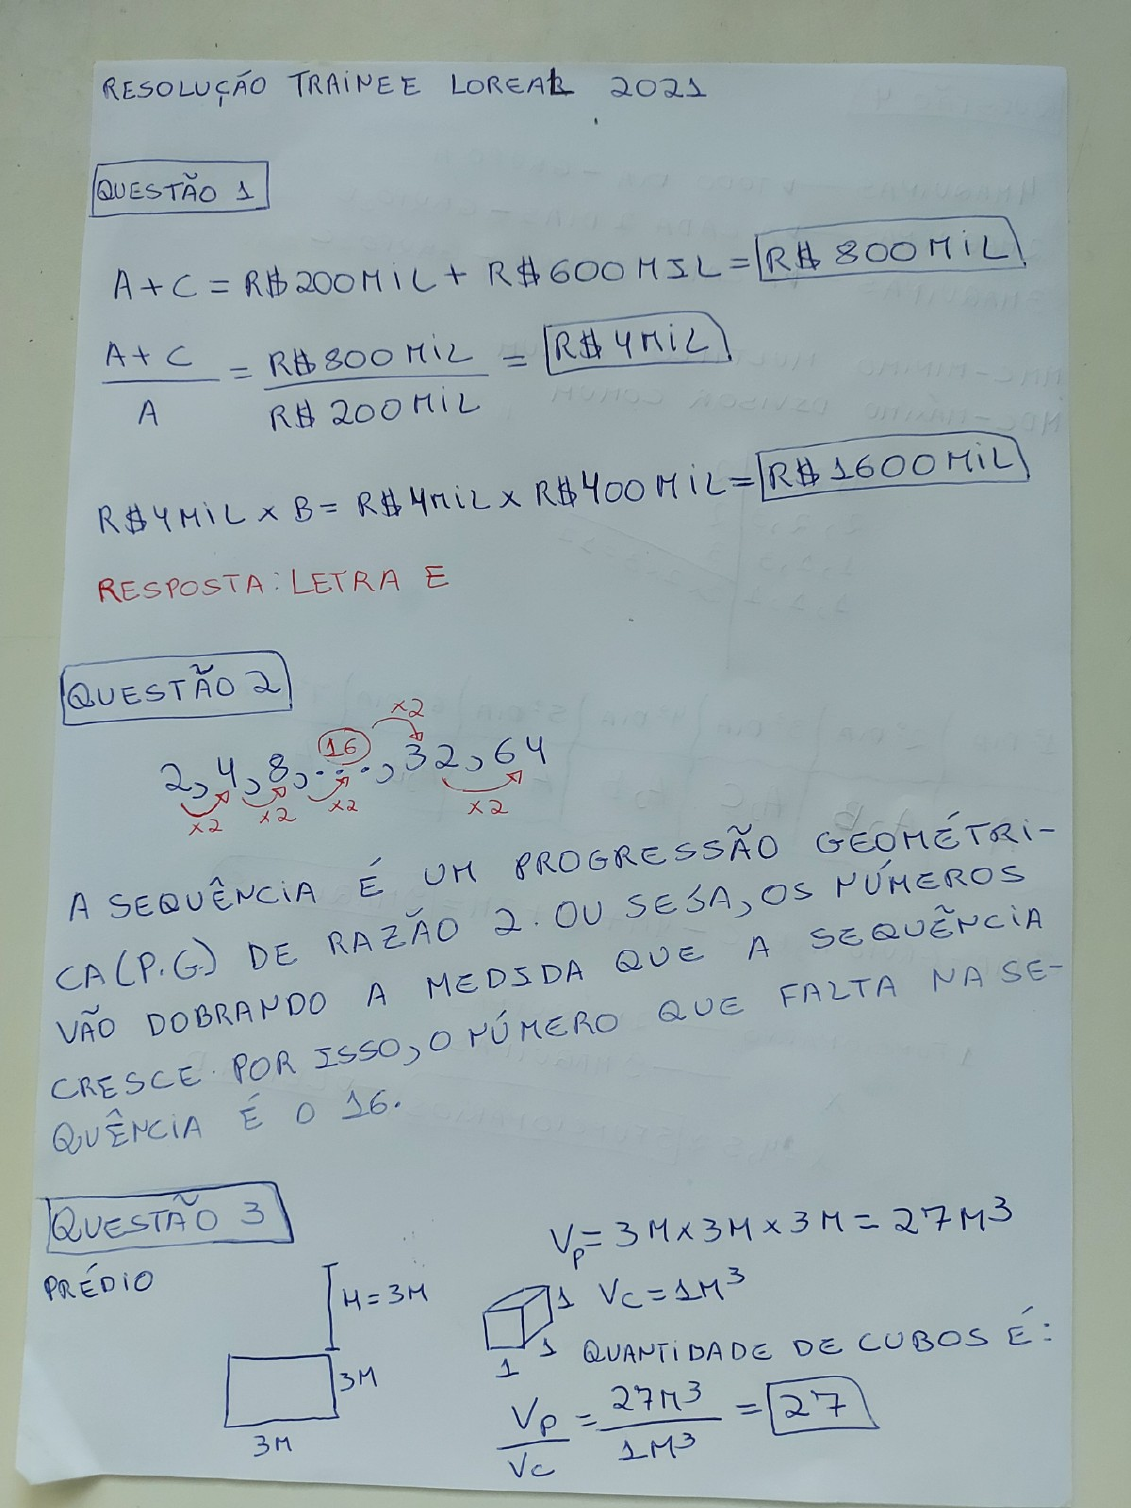 RESOLUÇÃO TRAINEE LOREAL 2021
QUESTÃO 1
A+C = R$200MIL + R$600MIL = R$ 800MIL
A+C / A = R$800MIL / R$ 200MIL = R$ 4MIL
R$4MIL x B = R$4MIL x R$400MIL = R$ 1600MIL
RESPOSTA: LETRA E
QUESTÃO 2
x2
16
2, 4, 8, ..., 32, 64
x2 x2 x2 x2
A SEQUÊNCIA É UM PROGRESSÃO GEOMÉTRI-
CA (P.G.) DE RAZÃO 2. OU SEJA, OS NÚMEROS
VÃO DOBRANDO A MEDIDA QUE A SEQUÊNCIA
CRESCE. POR ISSO, O NÚMERO QUE FALTA NA SE-
QUÊNCIA É O 16.
QUESTÃO 3
PRÉDIO
H = 3M
3M
3M
Vp = 3M x 3M x 3M = 27M³
1 1 1 Vc = 1M³
QUANTIDADE DE CUBOS É:
Vp / Vc = 27M³ / 1M³ = 27